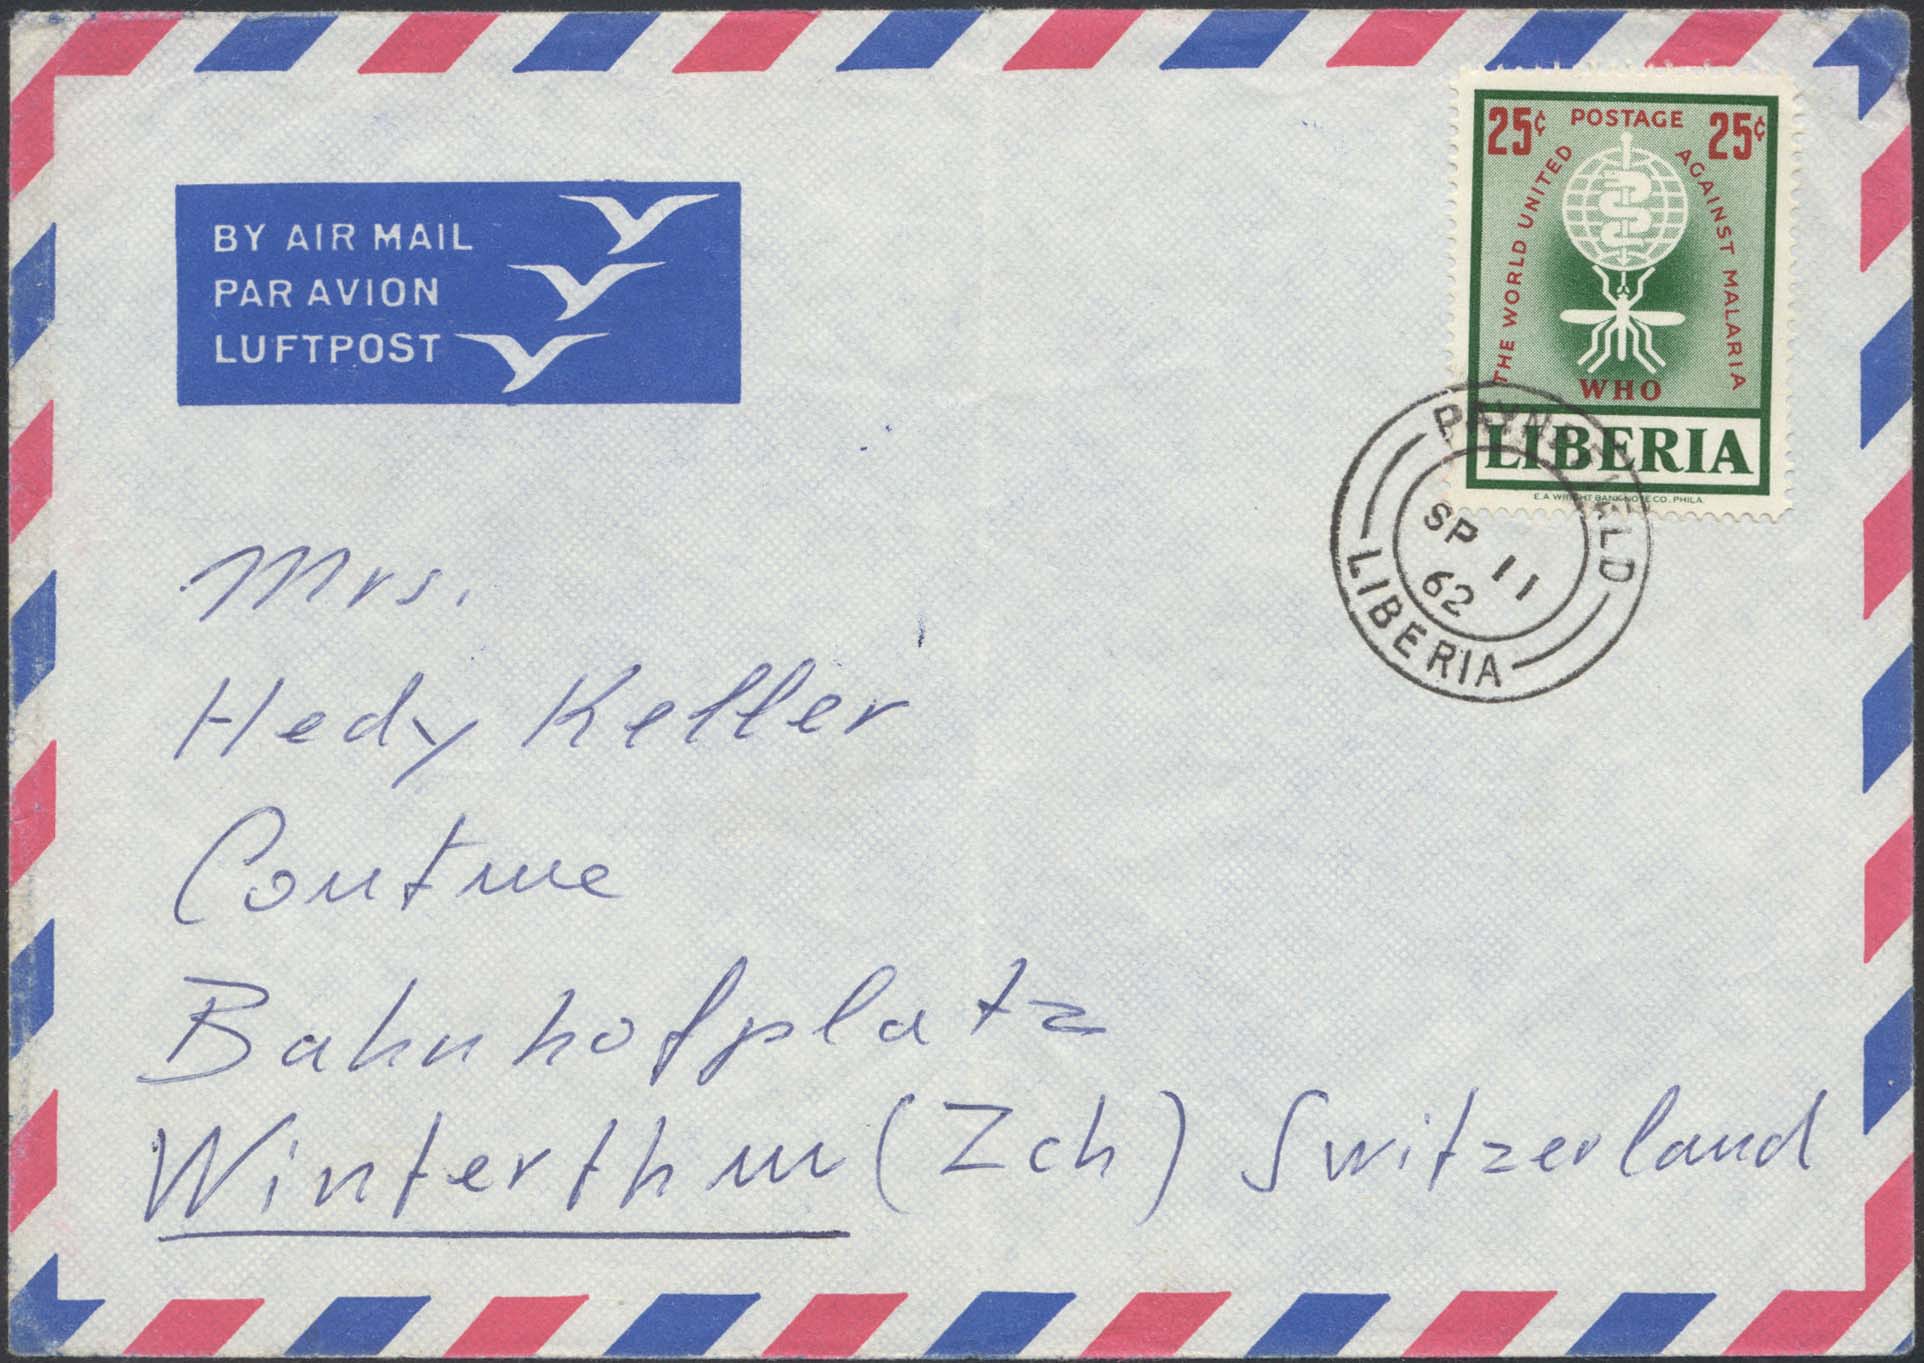 BY AIR MAIL
PAR AVION
LUFTPOST
25¢ POSTAGE 25¢
THE WORLD UNITED AGAINST MALARIA
WHO
LIBERIA
E.A. WRIGHT BANK NOTE CO. PHILA.
LIBERIA
SP 11
62
Mrs.
Hedy Keller
Bahnhofplatz
Winterthur (Zch) Switzerland